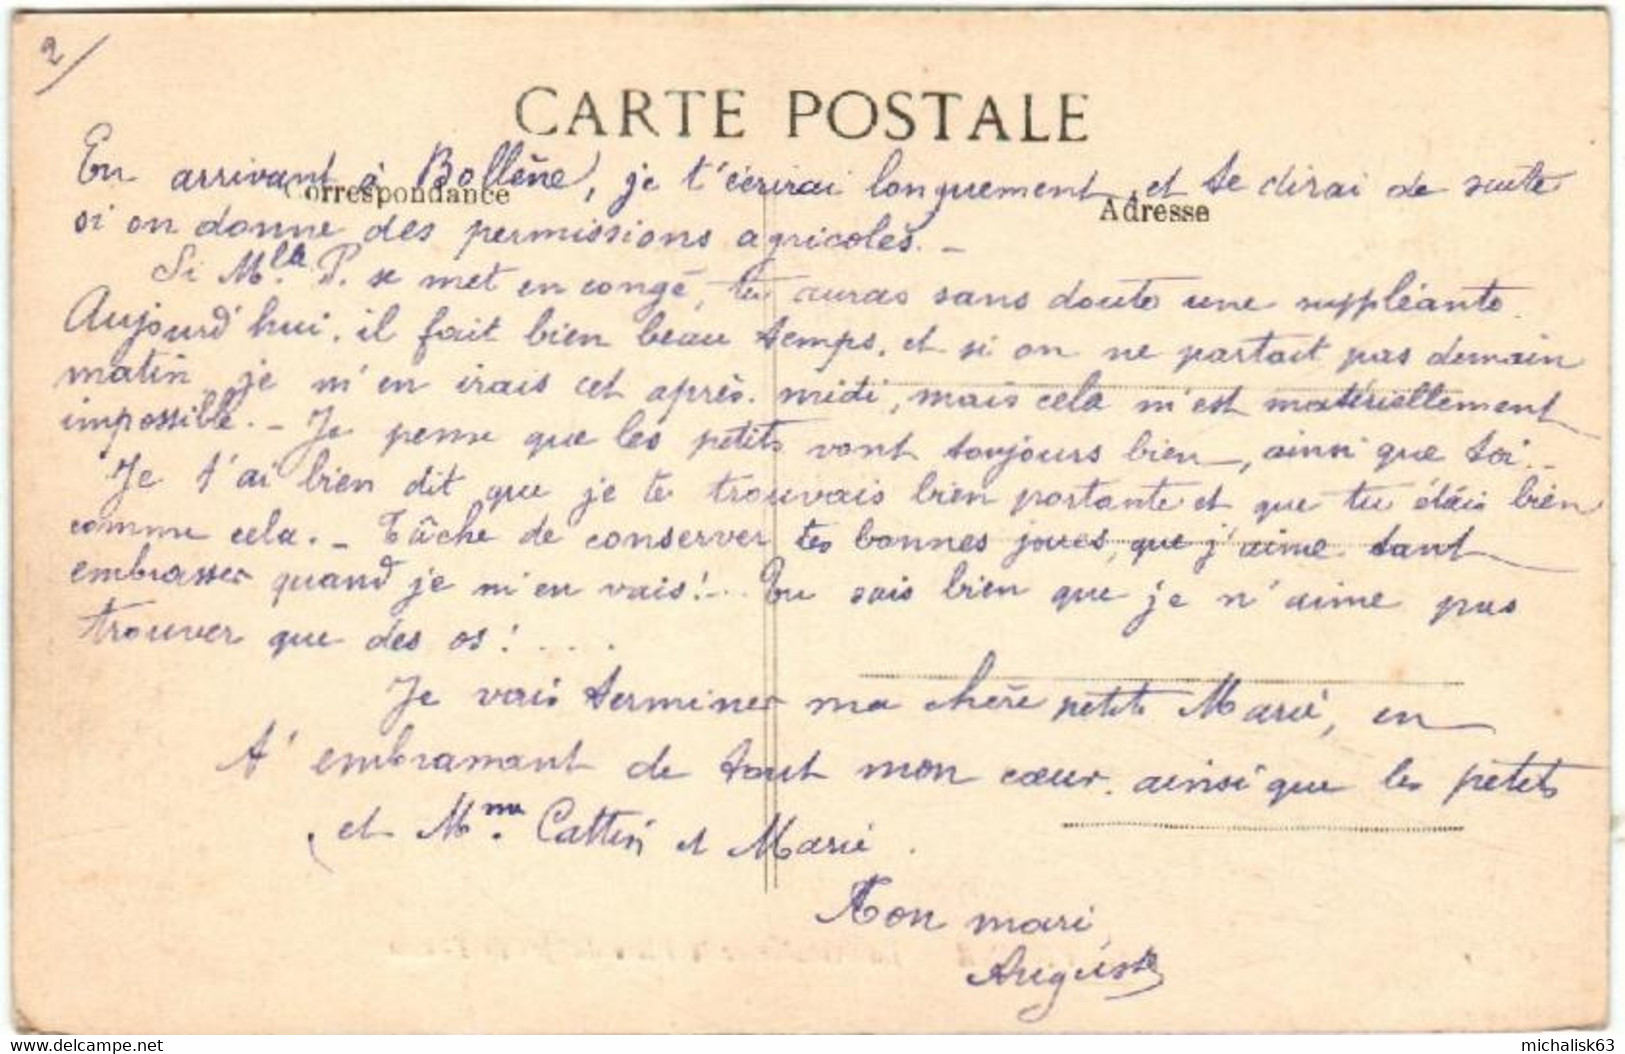 2/
CARTE POSTALE
En arrivant à Bollène, je t'écrirai longuement, et te dirai de suite
Correspondance
Adresse
si on donne des permissions agricoles. _
Si Mlle P. se met en congé, tu auras sans doute une suppléante.
Aujourd'hui, il fait bien beau temps, et si on ne partait pas demain
matin je m'en irais cet après-midi, mais cela m'est matériellement
impossible. _ Je pense que les petits vont toujours bien, ainsi que toi. _
Je t'ai bien dit que je te trouvais bien portante et que tu étais bien
comme cela. _ Tâche de conserver tes bonnes joues, que j'aime tant
embrasser quand je m'en vais!... Tu sais bien que je n'aime pas
trouver que des os! ....
Je vais terminer ma chère petite Marie, en
t'embrassant de tout mon cœur, ainsi que les petits
et Mme Cattin et Marie.
Ton mari,
Auguste
Delcampe.net
michalisk63